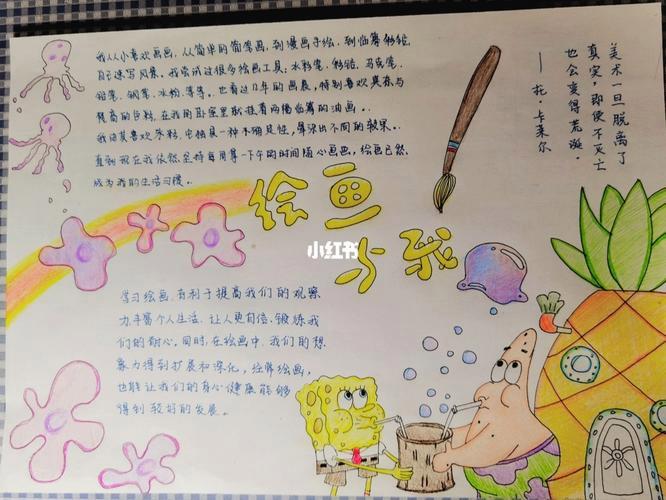 我从小喜欢画画,从简单的简笔画,到漫画手绘,到临摹彩铅,
自己速写风景。我尝试过很多绘画工具:水彩笔、彩铅、马克笔、
铅笔、钢笔、水粉,等等,也看过几年的画展,特别喜欢莫奈与
梵高的色彩,在我的卧室里就挂着两幅临摹的油画。
我尤其喜欢水粉,它独具一种不确定性,晕染出不同的效果。
直到现在我依然坚持每周拿一下午的时间随心画画,绘画已然
成为我的生活习惯。
美术一旦脱离了
真实,即使不灭亡
也会变得荒诞。
——托·卡莱尔
绘画
与我
小红书
学习绘画,有利于提高我们的观察
力,丰富个人生活,让人更自信,锻炼我
们的耐心。同时,在绘画中,我们的想
象力得到扩展和深化,经常绘画,
也能让我们的身心健康能够
得到较好的发展。